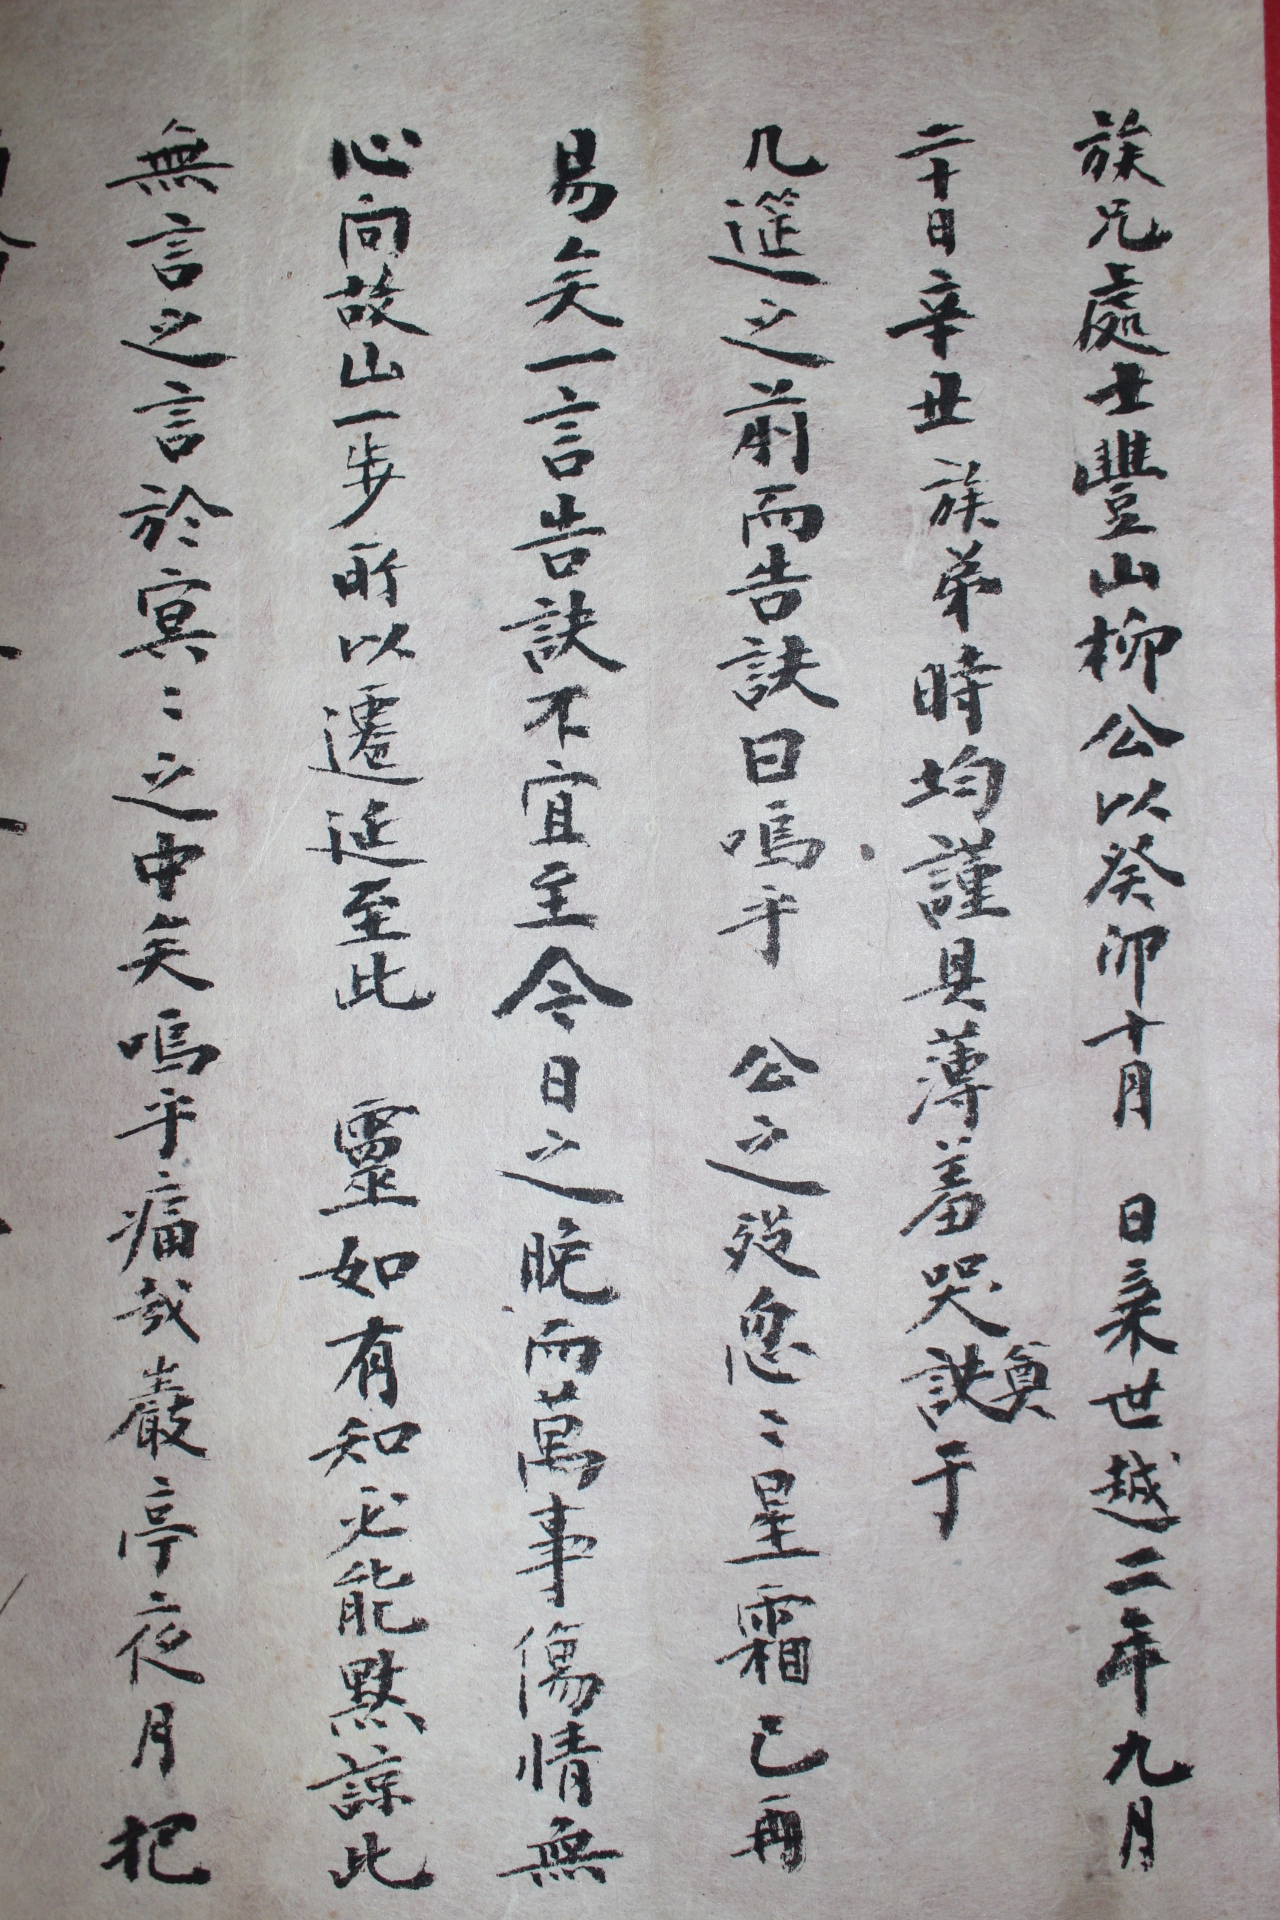 族兄處士豐山柳公以癸卯十月 日棄世越二年九月
二十日辛丑族弟時均謹具薄羞哭訣奠于
几筵之前而告訣曰嗚乎 公之歿忽〻星霜已再
易矣一言告訣不宜至今日之晩而萬事傷情無
心向故山一步所以遷延至此 靈如有知必能默諒此
無言之言於冥〻之中矣嗚乎痛哉巖亭夜月把